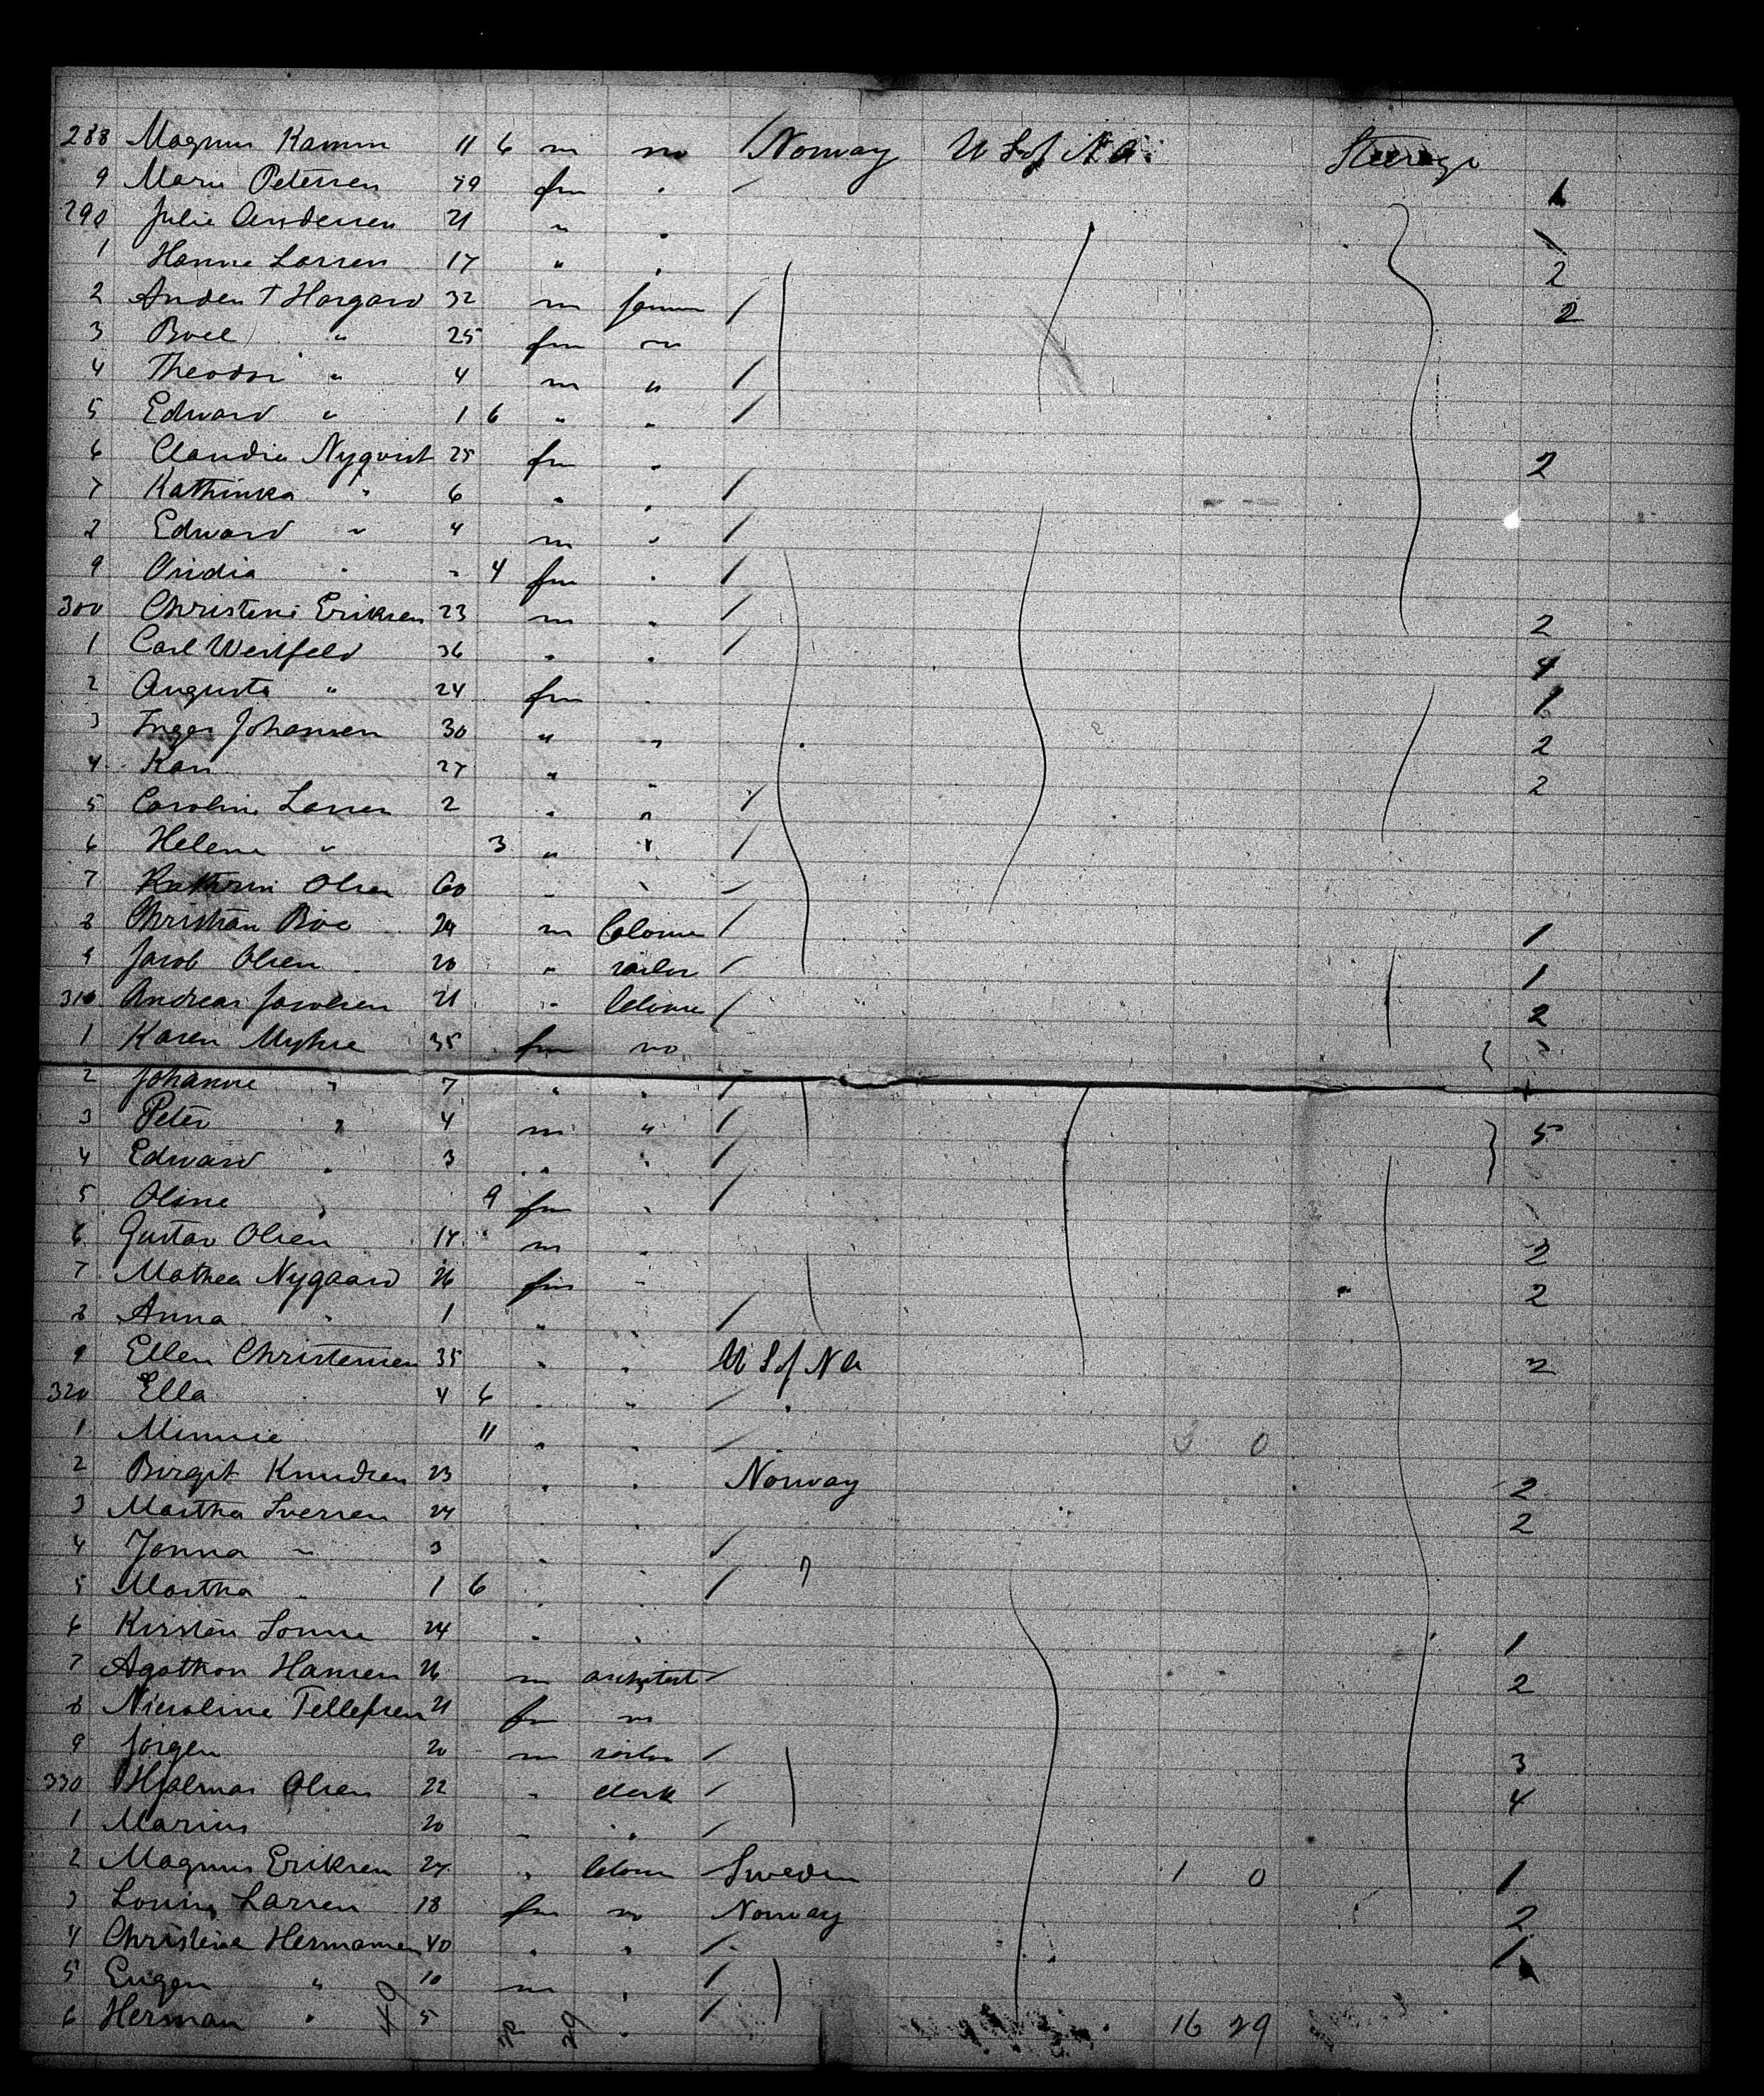 288 Magnus Kamm 11 6 m no Norway U S of N A. Steerage
9 Marie Petersen 59 fm " 1
290 Julie Andersen 21 " "
1 Hanne Larsen 17 " " 2
2 Anders T Horgard 32 m farmer 2
3 Boel " 25 fm no
4 Theodor " 4 m "
5 Edward " 1 6 " "
6 Claudia Nyqvist 25 fm " 2
7 Kathinka " 6 " "
2 Edward " 4 m "
9 Ovidia " " 4 fm "
300 Christene Eriksen 23 m " 2
1 Carl Westfeld 36 " " 4
2 Augusta " 24 fm " 1
3 Inger Johansen 30 " " 2
4 Kari 27 " " 2
5 Caroline Larsen 2 " "
6 Helene " 3 " "
7 Kathrin Olsen 60 " "
8 Christian Boe 24 m 1
9 Jacob Olsen 20 " sailor 1
310 Andreas Jacobsen 21 " 2
1 Karen Myhre 35 fm no
2 Johanne " 7 " "
3 Peter " 4 m " 5
4 Edward " 3 " "
5 Oline " 9 fm "
6 Gustav Olsen 14 m " 2
7 Mathea Nygaard 26 fm " 2
8 Anna " 1 " "
9 Ellen Christensen 35 " " U S of N A 2
320 Ella " 4 6 " "
1 Minnie 11 " " 3 0
2 Birgit Knudsen 23 " " Norway 2
3 Martha Iversen 24 " " 2
4 Jonna " 3 "
5 Martha " 1 6 " "
6 Kirsten Sonne 24 " " 1
7 Agathon Hansen 26 m architect 2
8 Nicoline Tellefsen 21 fm no
9 Jörgen 20 m sailor 3
330 Hjalmar Olsen 22 " clerk 4
1 Marius 20 " "
2 Magnus Eriksen 24 " Sweden 1 0 1
3 Larsen 18 fm no Norway 2
4 Christine Hermansen 40 " " 1
5 Eugen " 10 m "
6 Herman " 5 " " 16 29
49 29